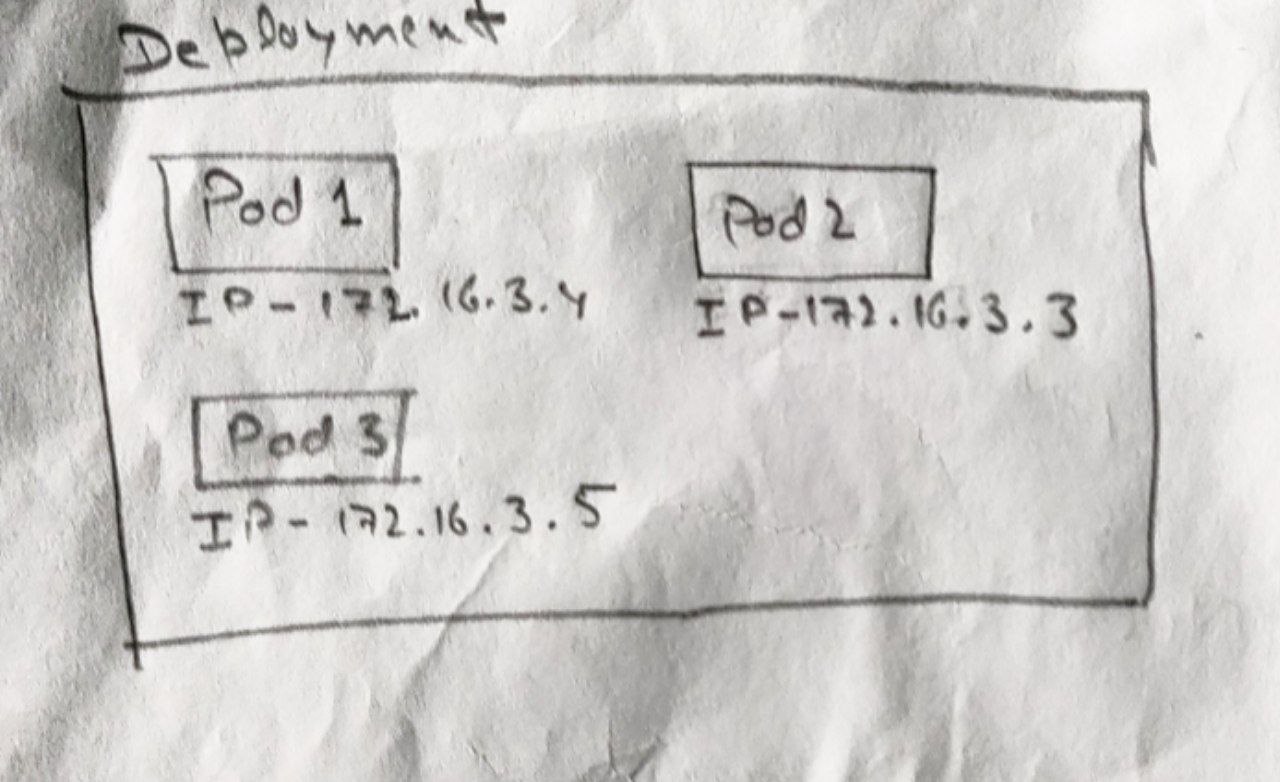 Deployment
Pod 1
IP - 172.16.3.4
Pod 2
IP - 172.16.3.3
Pod 3
IP - 172.16.3.5